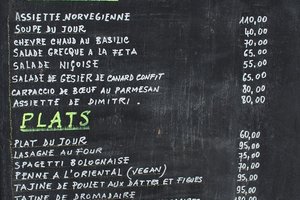 ASSIETTE NORVEGIENNE 110,00
SOUPE DU JOUR 40,00
CHEVRE CHAUD AU BASILIC 70,00
SALADE GRECQUE A LA FETA 65,00
SALADE NIÇOISE 55,00
SALADE DE GESIER DE CANARD CONFIT 65,00
CARPACCIO DE BŒUF AU PARMESAN 80,00
ASSIETTE DE DIMITRI. 80,00
PLATS
PLAT DU JOUR 60,00
LASAGNE AU FOUR 95,00
SPAGETTI BOLOGNAISE 75,00
PENNE A L'ORIENTAL (VEGAN) 75,00
TAJINE DE POULET AUX DATTES ET FIGUES 95,00
TAJINE DE DROMADAIRE